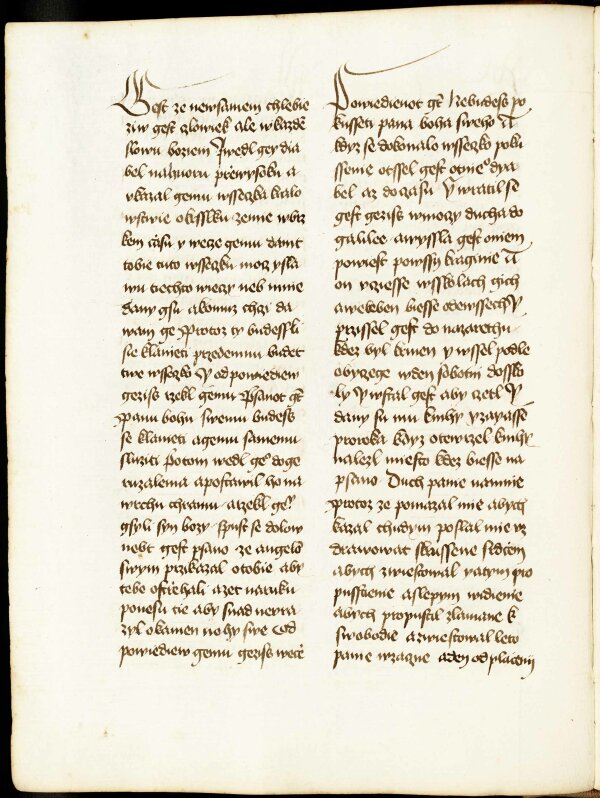 Gest ze newsamem chlebie
ziw gest czlowiek ale wkazde
slowu boziem Iwedl gey dia
bel nahuoru przewysoku a
vkazal gemu wsseczka kralo
wstwie okrsslku zemie wbrz
kem czasu y wecze gemu damt
tobie tuto wsseczku mocz ysla
wu tiechto wieczy neb mnie
dany gsu akomuz chczi da
wam ge Protoz ty budessli
sie klanieti przedemnu budet
twe wsseczko Y odpowiediew
gezis rzekl gemu Psanot gt
Panu bohu swemu budess
se klanieti agemu samemu
sluziti Potom wedl geho doge
ruzalema apostawil ho na
wrchu chramu arzekl gemu
gsyli syn bozy spust se dolow
nebt gest psano ze angelom
swym przikazal otobie aby
tebe ostrziehali azet naruku
ponesu tie aby snad nevra
zyl okamen nohy swe Od
powiediew gemu gezis wece
Powiedienot gt Nebudess po
kusseti pana boha sweho A
kdyz se dokonalo wsseczko poku
ssenie otssel gest otnieho dya
bel az doczasu Y wratil se
gest gezis wmoczy ducha do
galilee awyssla gest oniem
powiest powssy kraginie A
on vcziesse wsskolach gich
aweleben biesse odewssech Y
przissel gest do nazarethu
kdez byl krmen y wssel podle
obyczege wden sobotni dossko
ly Y wstal gest aby cztl Y
dany su mu knihy yzayasse
proroka kdyz otewrzel knihy
nalezl miesto kdez biesse na
psano Duch panie namnie
protoz ze pomazal mie abych
kazal chudym poslal mie vz
drawowat skrussene srdcem
abych zwiestowal yatym pro
pusstienie aslepym widienie
abych propustil zlamane k
swobodie azwiestowal leto
panie wzacne aden odplacenij